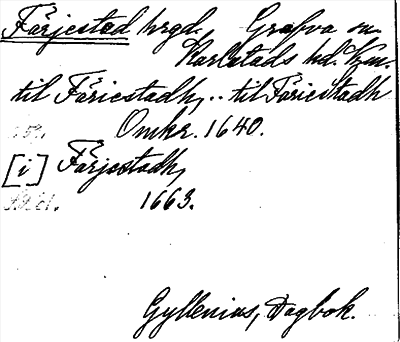 Färjestad hrgd. Grafva sn
Karlstads hd. Vrml.
til Färiestadh, .. til Färiestadh
Omkr. 1640.
[i] Färjestadh,
1663.
Gyllenius, Dagbok.